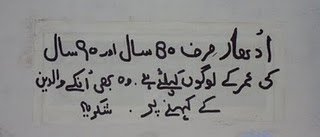 اُدھار صرف 80 سال اور ۹۰ سال
کی عمر کے لوگوں کیلئے ہے۔ وہ بھی اُنکے والدین
کے کہنے پر ۔ شکریہ